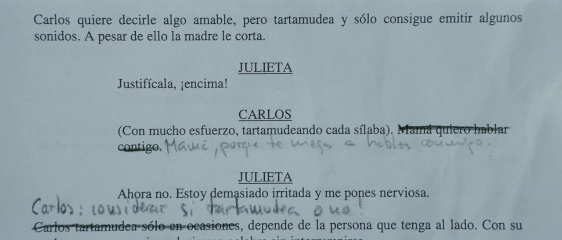 Carlos quiere decirle algo amable, pero tartamudea y sólo consigue emitir algunos
sonidos. A pesar de ello la madre le corta.
JULIETA
Justifícala, ¡encima!
CARLOS
(Con mucho esfuerzo, tartamudeando cada sílaba). Mamá quiero hablar
contigo. Mamá, porque te niegas a hablar conmigo.
JULIETA
Ahora no. Estoy demasiado irritada y me pones nerviosa.
Carlos: considerar si tartamudea o no!
Carlos tartamudea sólo en ocasiones, depende de la persona que tenga al lado. Con su